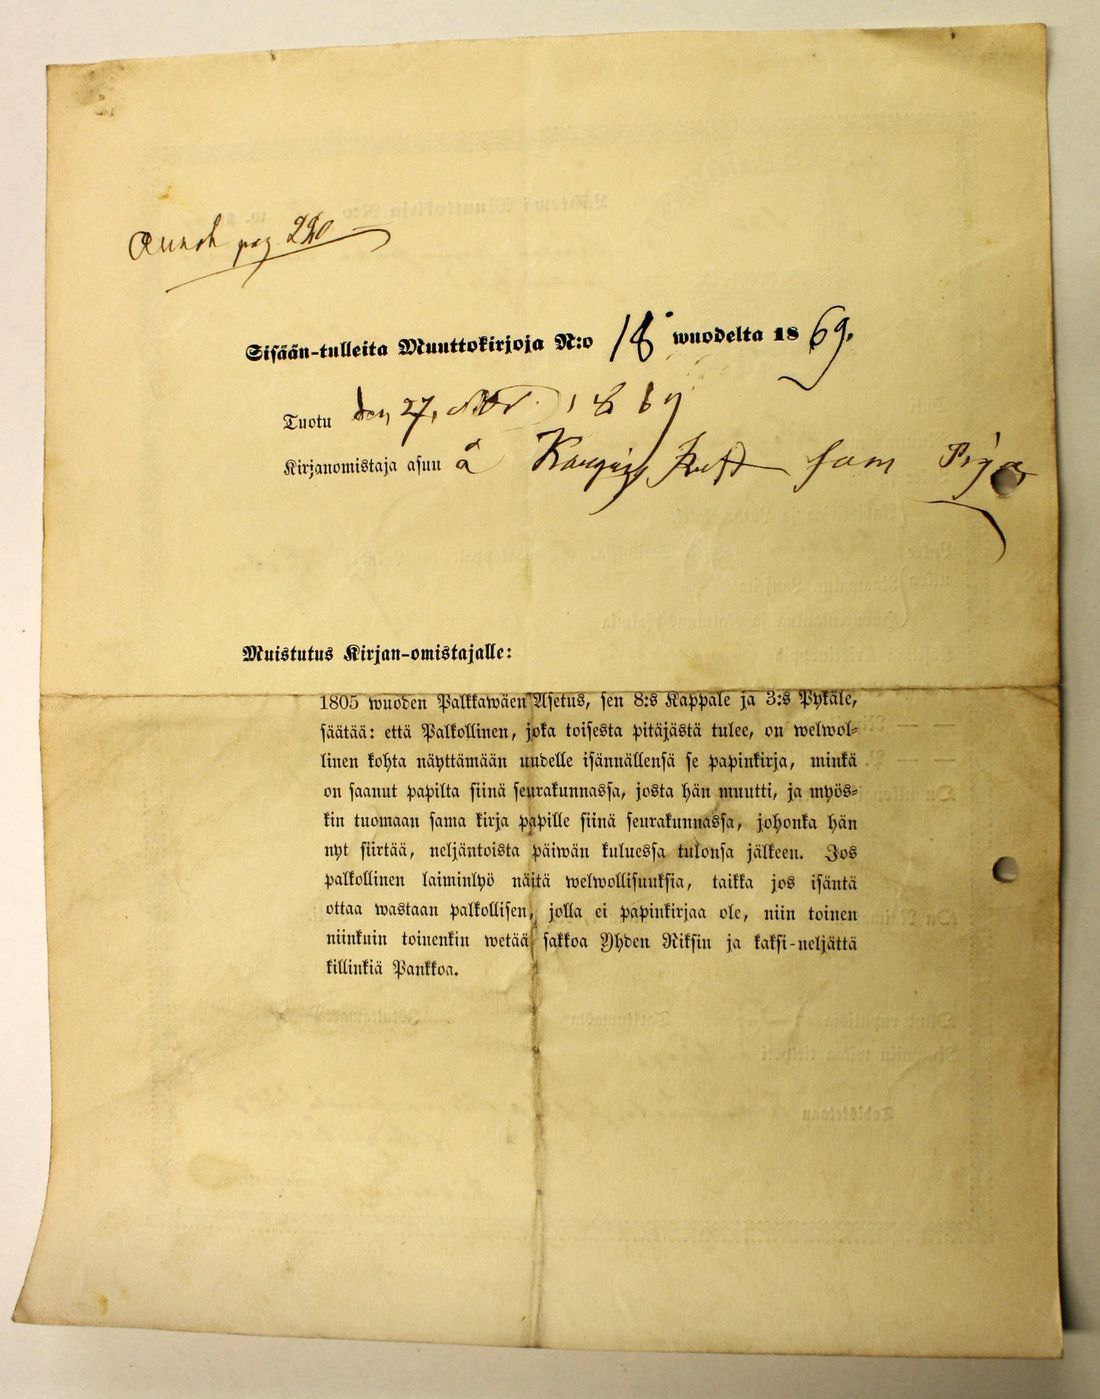 pag. 220
Sisään-tulleita Muuttokirjoja N:o 18 wuodelta 1869.
Tuotu den 27, 1869
Kirjanomistaja asuu å som Piga
Muistutus Kirjan-omistajalle:
1805 wuoden Palkkawäen Asetus, sen 8:s Kappale ja 3:s Pykäle,
säätää: että Palkollinen, joka toisesta pitäjästä tulee, on welwol-
linen kohta näyttämään uudelle isännällensä se papinkirja, minkä
on saanut papilta siinä seurakunnassa, josta hän muutti, ja myös-
kin tuomaan sama kirja papille siinä seurakunnassa, johonka hän
nyt siirtää, neljäntoista päiwän kuluessa tulonsa jälkeen. Jos
palkollinen laiminlyö näitä welwollisuuksia, taikka jos isäntä
ottaa wastaan palkollisen, jolla ei papinkirjaa ole, niin toinen
niinkuin toinenkin wetää sakkoa Yhden Riksin ja kaksi-neljättä
killinkiä Pankkoa.